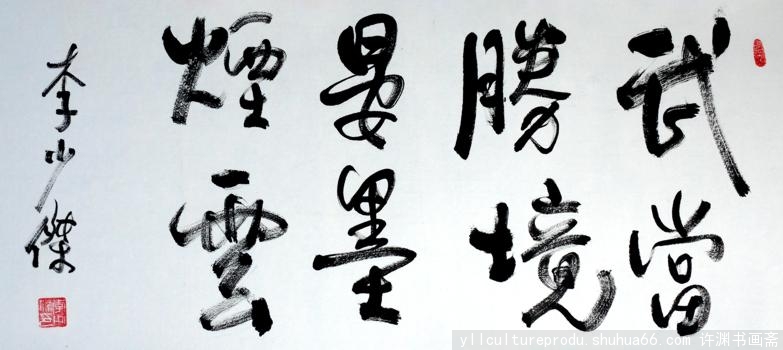 武當
勝境
晏墨
煙雲
李少傑
yllcultureprodu.shuhua66.com 许渊书画斋